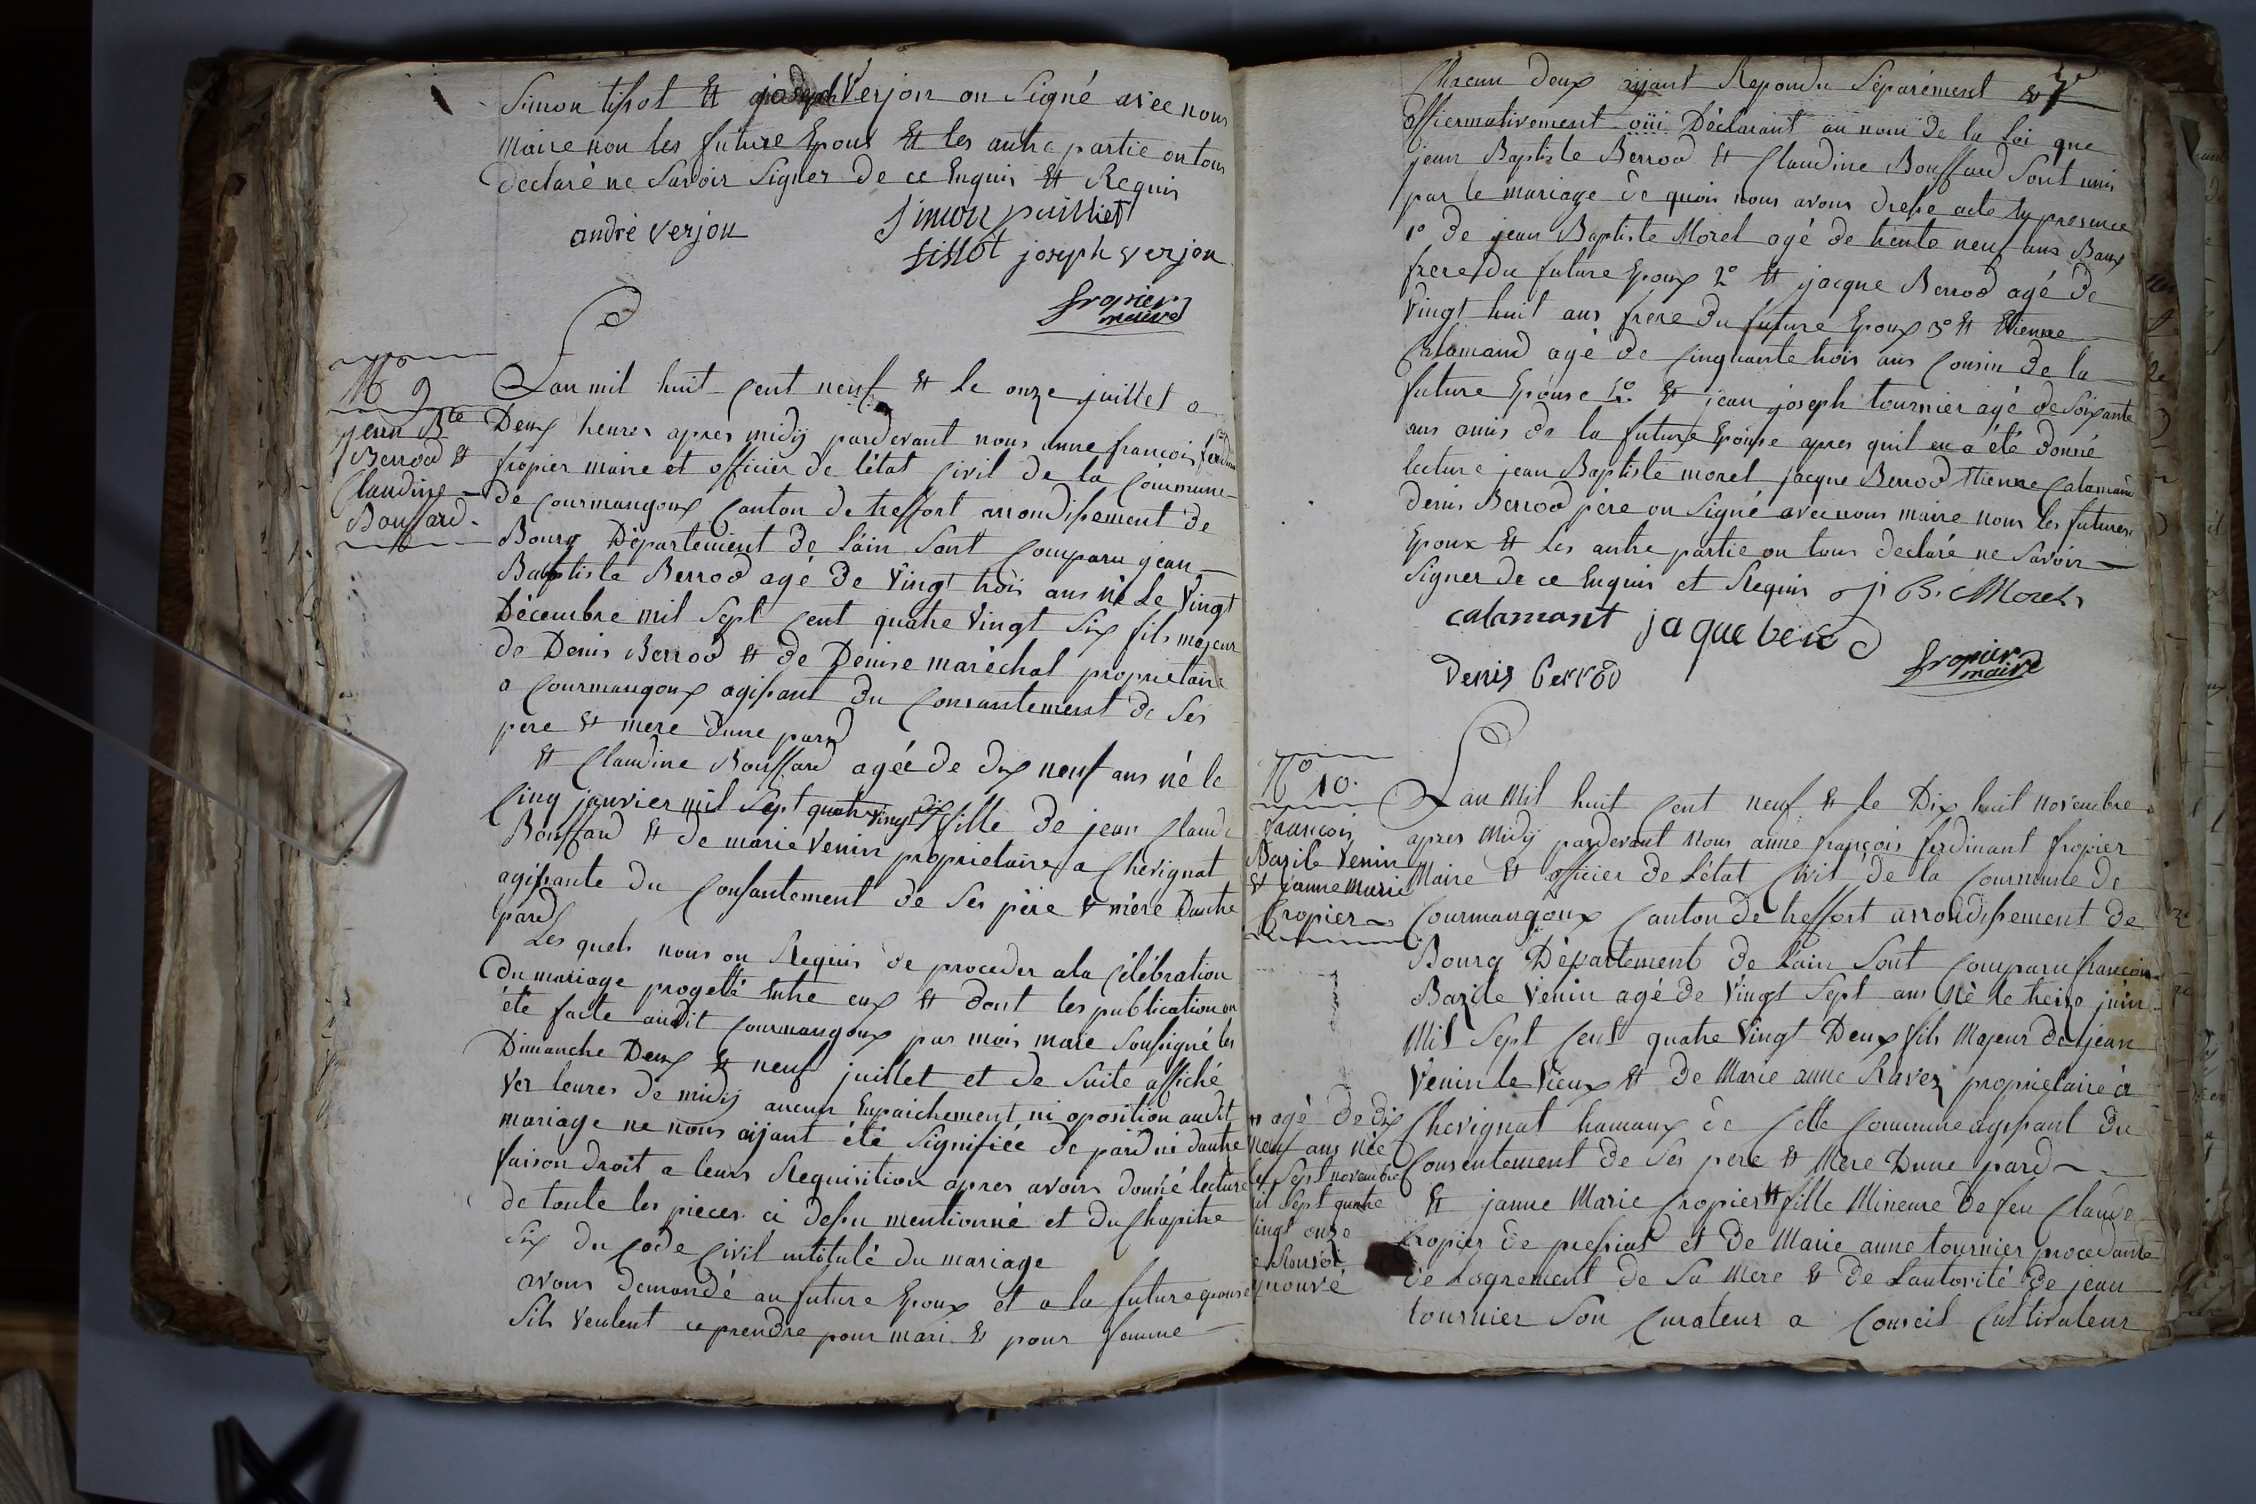 Simon tissot et joseph Verjon on Signé avec nous
maire non les future Epous et les autre partie on tous
declaré ne Savoir Signer de ce Enquis et Requis
andré verjon
Simon puilliet
tissot joseph verjon
fropier
maire
N° 9
jean Bte
Berrod et
Claudine
Bouffard
L'an mil huit Cent neuf et le onze juillet a
Deux heures apres midÿ pardevant nous anne francois ferdinan
fropier maire et officier de l'état Civil de la Commune
de Courmangoux Canton de treffort arrondissement de
Bourg Département de L'ain Sont Comparu jean
Baptiste Berrod agé de Vingt trois ans né Le Vingt
Décembre mil Sept Cent quatre Vingt Six fils majeur
de Denis Berrod et de Denise maréchal proprietaire
a Courmangoux agissant du Consantement de Ses
pere et mere dune pard
et Claudine Bouffard agée de dix neuf ans né le
Cinq janvier mil Sept quatre vingt dix fille de jean Claude
Bouffard et de marie Venin proprietaire a Chevignat
agissante du Consantement de Ses père & mère Dautre
pard
Les quels nous on Requis de proceder a la Célébration
du mariage progetté Entre eux et dont les publication on
été faite audit Courmangoux par mois maire Soussigné les
Dimanche Deux et neuf juillet et de Suite affiché
Ver leures de midÿ aucun Empaichement ni oposition audit
mariage ne nous aÿant été Signifiée de pard ni dautre
faison droit a leurs Requisition apres avoir donné lecture
de toute les pieces ci dessu mentionné et du Chapitre
Six du Code Civil intitulé du mariage
avons demandé au future Epoux et a la future epouse
Sils Veulent ce prendre pour mari et pour femme
Chacun deux aÿant Repondu Séparément et
affiermativement oüi Déclarant au nom de la Loi que
jean Baptiste Berrod et Claudine Bouffard Sont unis
par le mariage de quoi nous avons dresse acte En presence
1° de jean Baptiste Morel agé de trente neuf ans Baux
frere du future Epoux 2° et jacque Berrod agé de
Vingt huit ans frere du future Epoux 3° et Etienne
Calamand agé de Cinquante trois ans Cousin de la
future Epouse 4° et jean joseph tournier agé de Soixante
ans amis de la future Epouse apres quil en a été donné
lecture jean Baptiste morel jacque Berrod Etienne Calamand
denis Berrod père on Signé avec nous maire nom les futures
Epoux et Les autre partie on tous declaré ne Savoir
Signer de ce Enquis et Requis j B. Morel
calamant jaque berod
Denis berrod
fropier
maire
N° 10.
francois
Bazile Venin
et janne Marie
Cropier
L'an Mil huit Cent neuf et le Dix huit novembre
apres Midÿ pardevant Nous anne françois ferdinant fropier
Maire et officier de L'état Civil de la Commune de
Courmangoux Canton de treffort arrondissement de
Bourg Département de L'ain Sont Comparu francois
Bazile Venin agé de Vingt Sept ans né le treize juin
Mil Sept Cent quatre Vingt Deux fils Majeur de jean
Venin le Vieux et de Marie anne Ravez proprietaire à
Chevignat hamaux de Cette Commune agissant du
Consentement de Ses pere et Mere Dune pard
et janne Marie Cropier fille Mineure de feu Claude
Cropier de pressiat et de Marie anne tournier procedante
de Lagrement de Sa Mere et de Lautorité de jean
tournier Son Curateur a Conseil Cultivateur
agé de dix
neuf ans née
Sept novembre
Sept quatre
vingt onze